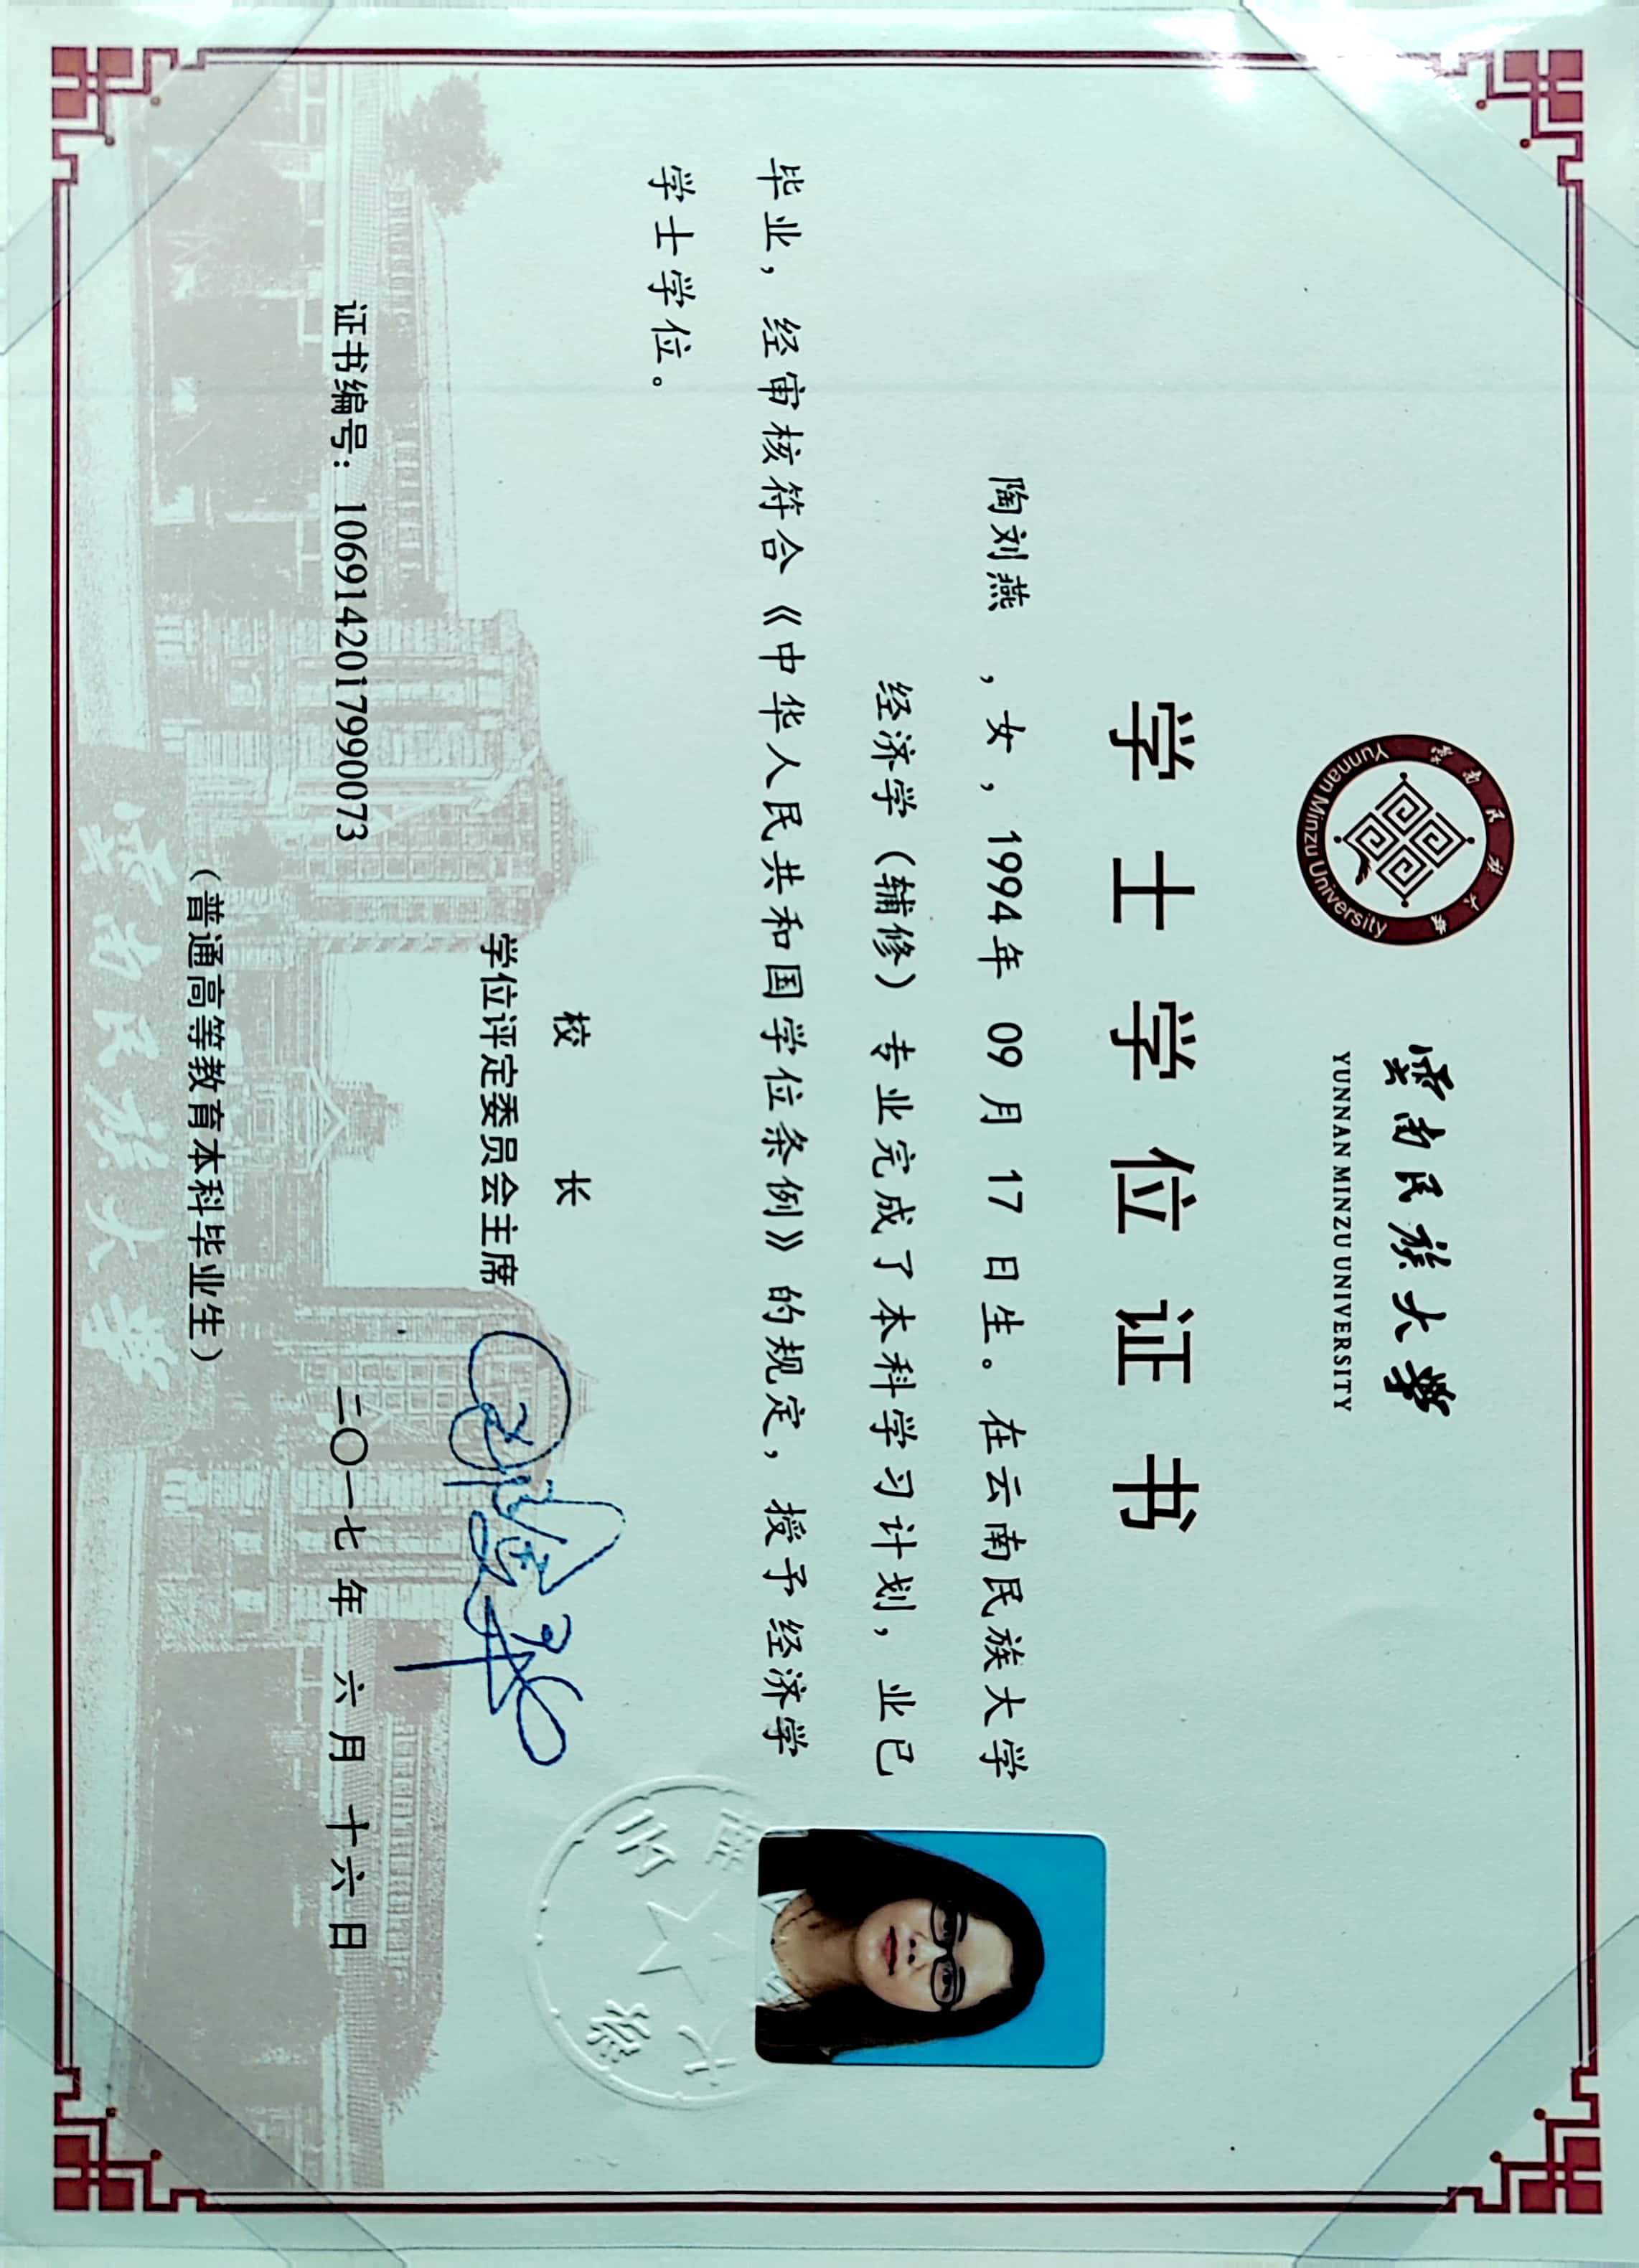 云南民族大学
Yunnan Minzu University
云南民族大学
YUNNAN MINZU UNIVERSITY
学士学位证书
陶刘燕 ，女，1994年 09 月 17 日生。在云南民族大学
经济学（辅修） 专业完成了本科学习计划，业已
毕业，经审核符合《中华人民共和国学位条例》的规定，授予经济学
学士学位。
校 长
学位评定委员会主席
证书编号：1069142017990073
二〇一七年 六月 十六日
（普通高等教育本科毕业生）
雲南民族大學